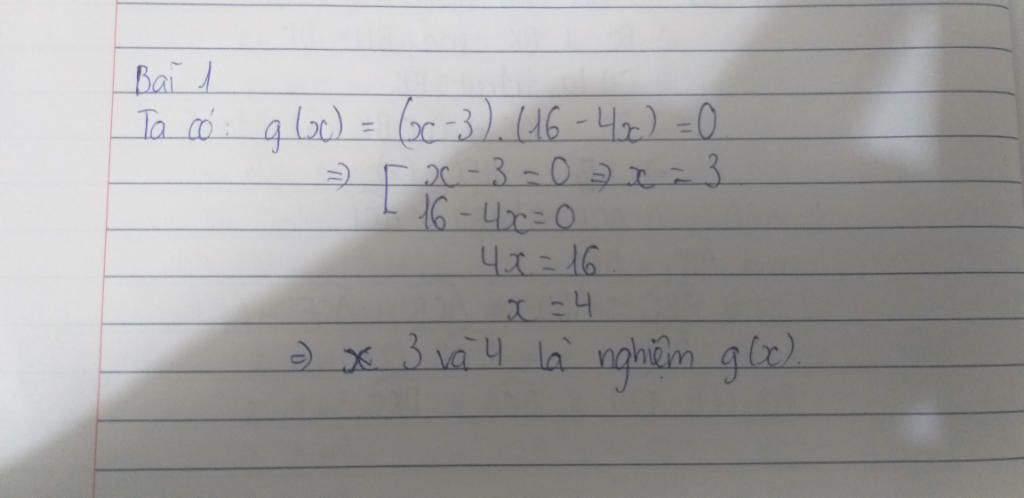 Bài 1
Ta có: g(x) = (x-3).(16-4x) = 0
⇒ [ x - 3 = 0 ⇒ x = 3
16 - 4x = 0
4x = 16.
x = 4
⇒ 3 và 4 là nghiệm g(x).